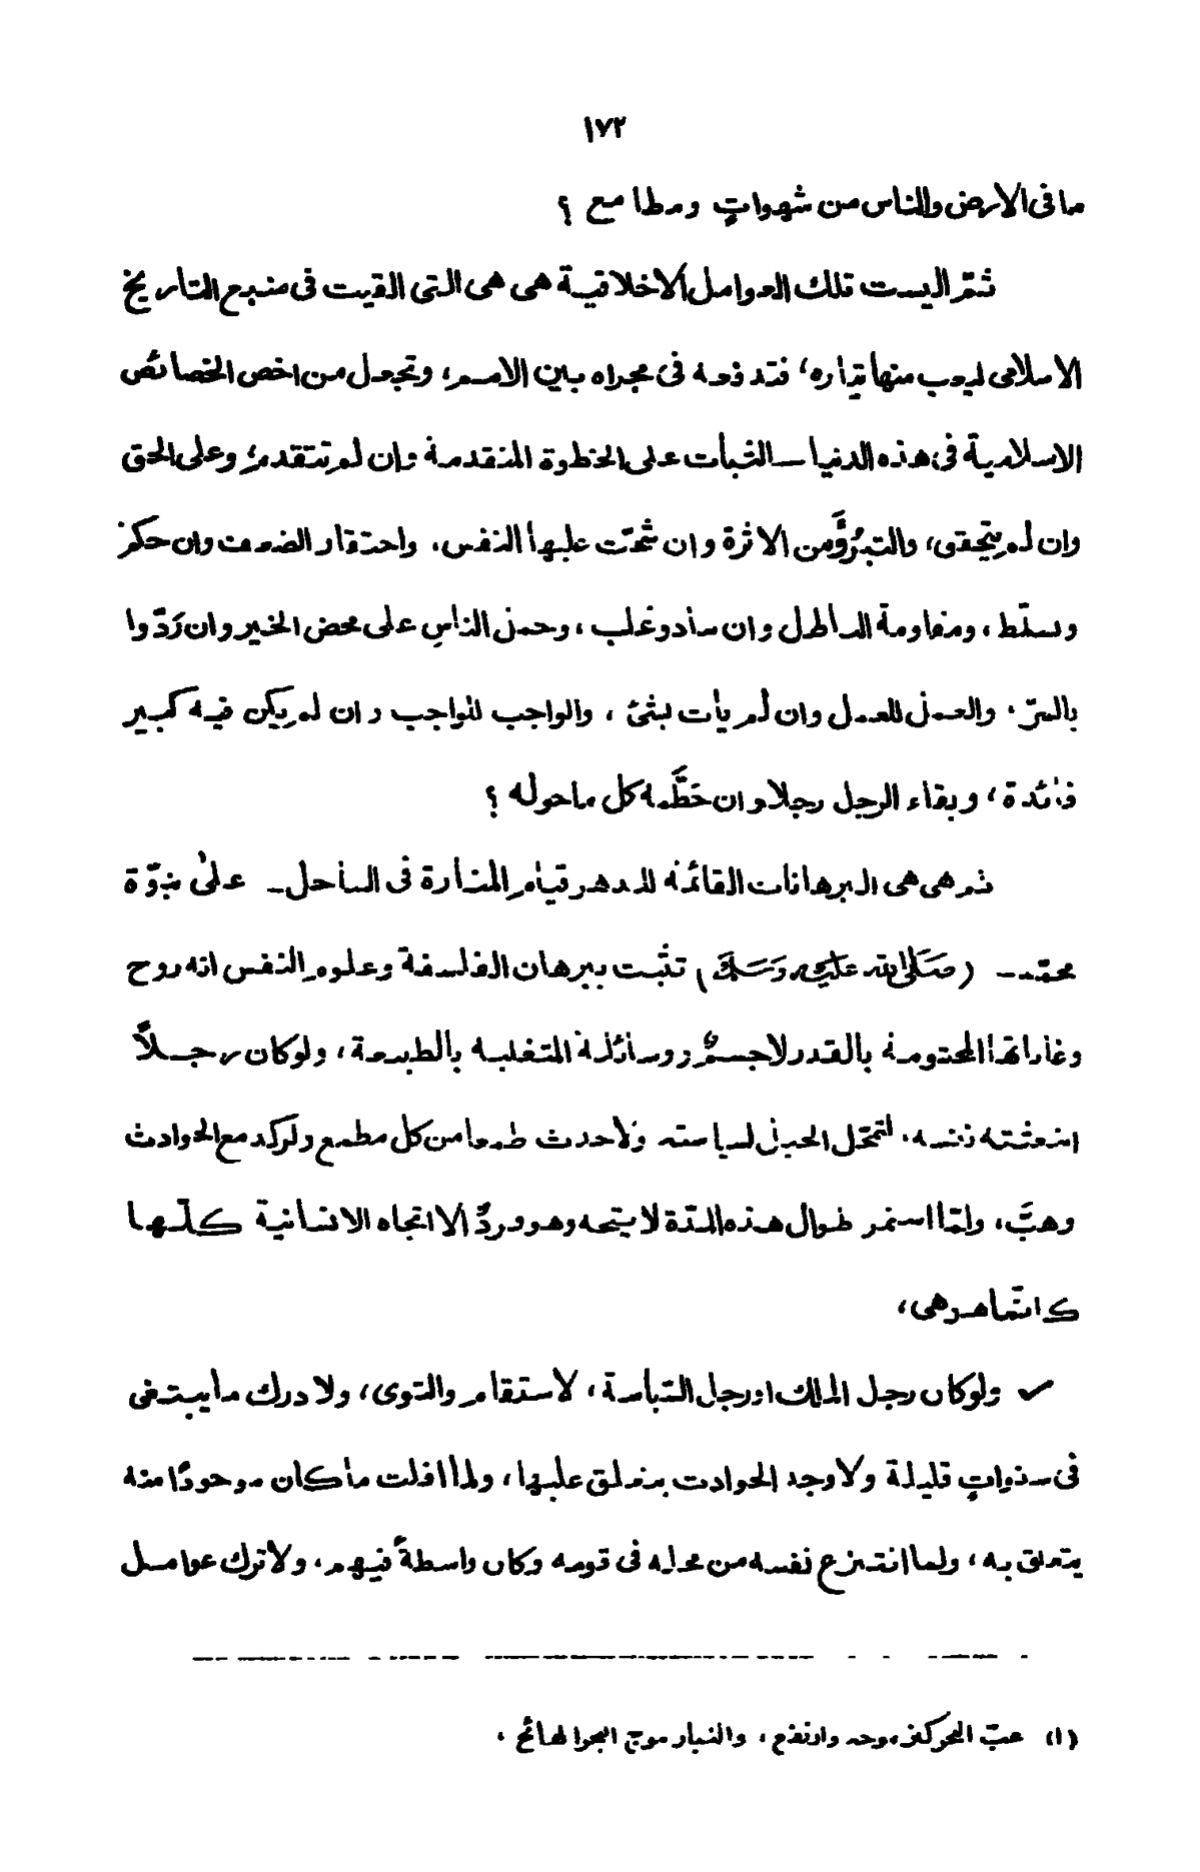 ١٧٢
ما فى الارض والناس من شهواتٍ ومطامع ؟
ثمّ اليست تلك العوامل الاخلاقية هى هى التى القيت فى منبع التاريخ
الاسلامى ليعب منها تياره، فتدفعه فى مجراه بين الامم، وتجعل من اخص الخصائص
الاسلامية فى هذه الدنيا ــ الثبات على الخطوة المتقدمة وان لم تتقدم، وعلى الحق
وان لم يتحقق، والتبرُّؤَ من الاثرة وان شحّت عليها النفس، واحتقار الضعف وان حكم
وسلّط، ومقاومة الباطل وان ساد وغلب، وحمل الناسِ على محض الخير وان رَدّوا
بالشرّ، والعمل للعمل وان لم يأت بشئ، والواجب للواجب وان لم يكن فيه كبير
فائدة، وبقاء الرجل رجلا وان حَطَّمه كل ماحوله ؟
ثم هى هى البرهانات القائمة للدهر قيام المنارة فى الساحل ــ على نبوّة
محمّد ــ (صَلَّى الله عَلَيْهِ وَسَلَّمَ) تثبت ببرهان الفلسفة وعلوم النفس انه روح
وغاياتها المحتومة بالقدر لا جسمٌ ووسائله المتغلبه بالطبيعة، ولو كان رجلاً
ابتعثته نفسه، لتمحّل الحيل لسياسته ولأحدث طمعا من كل مطمع ولركد مع الحوادث
وهبَّ، ولمّا استمر طوال هذه المدّة لا يتجه وهو فردٌ الا اتجاه الانسانية كلّها
كانّما هو هى،
ولو كان رجل الملك او رجل السّياسة، لاستقام والتوى، ولادرك ما يبتغى
فى سنواتٍ قليلة ولاوجد الحوادث يتعلق عليها، ولما افلت ما كان موجودًا منه
يتعلق به، ولما انتزع نفسه من محله فى قومه وكان واسطةً فيهم، ولاترك عوامل
(١) عبّ البحر كثر موجه وارتفع، والتيار موج البحر الهائج.